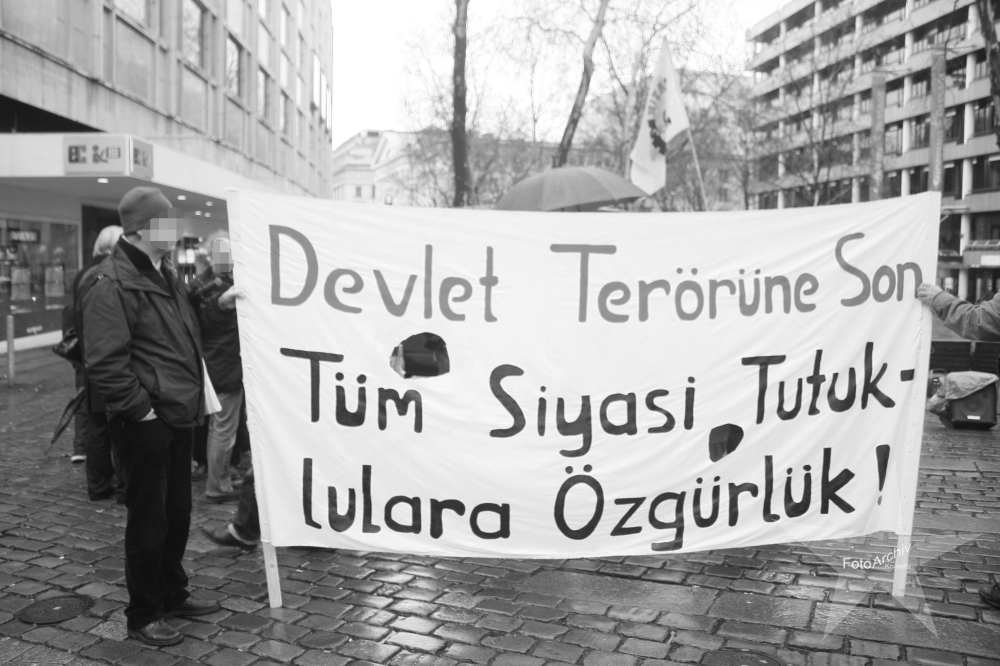 Devlet Terörüne Son
Tüm Siyasi Tutuk-
lulara Özgürlük!
FotoArchiv